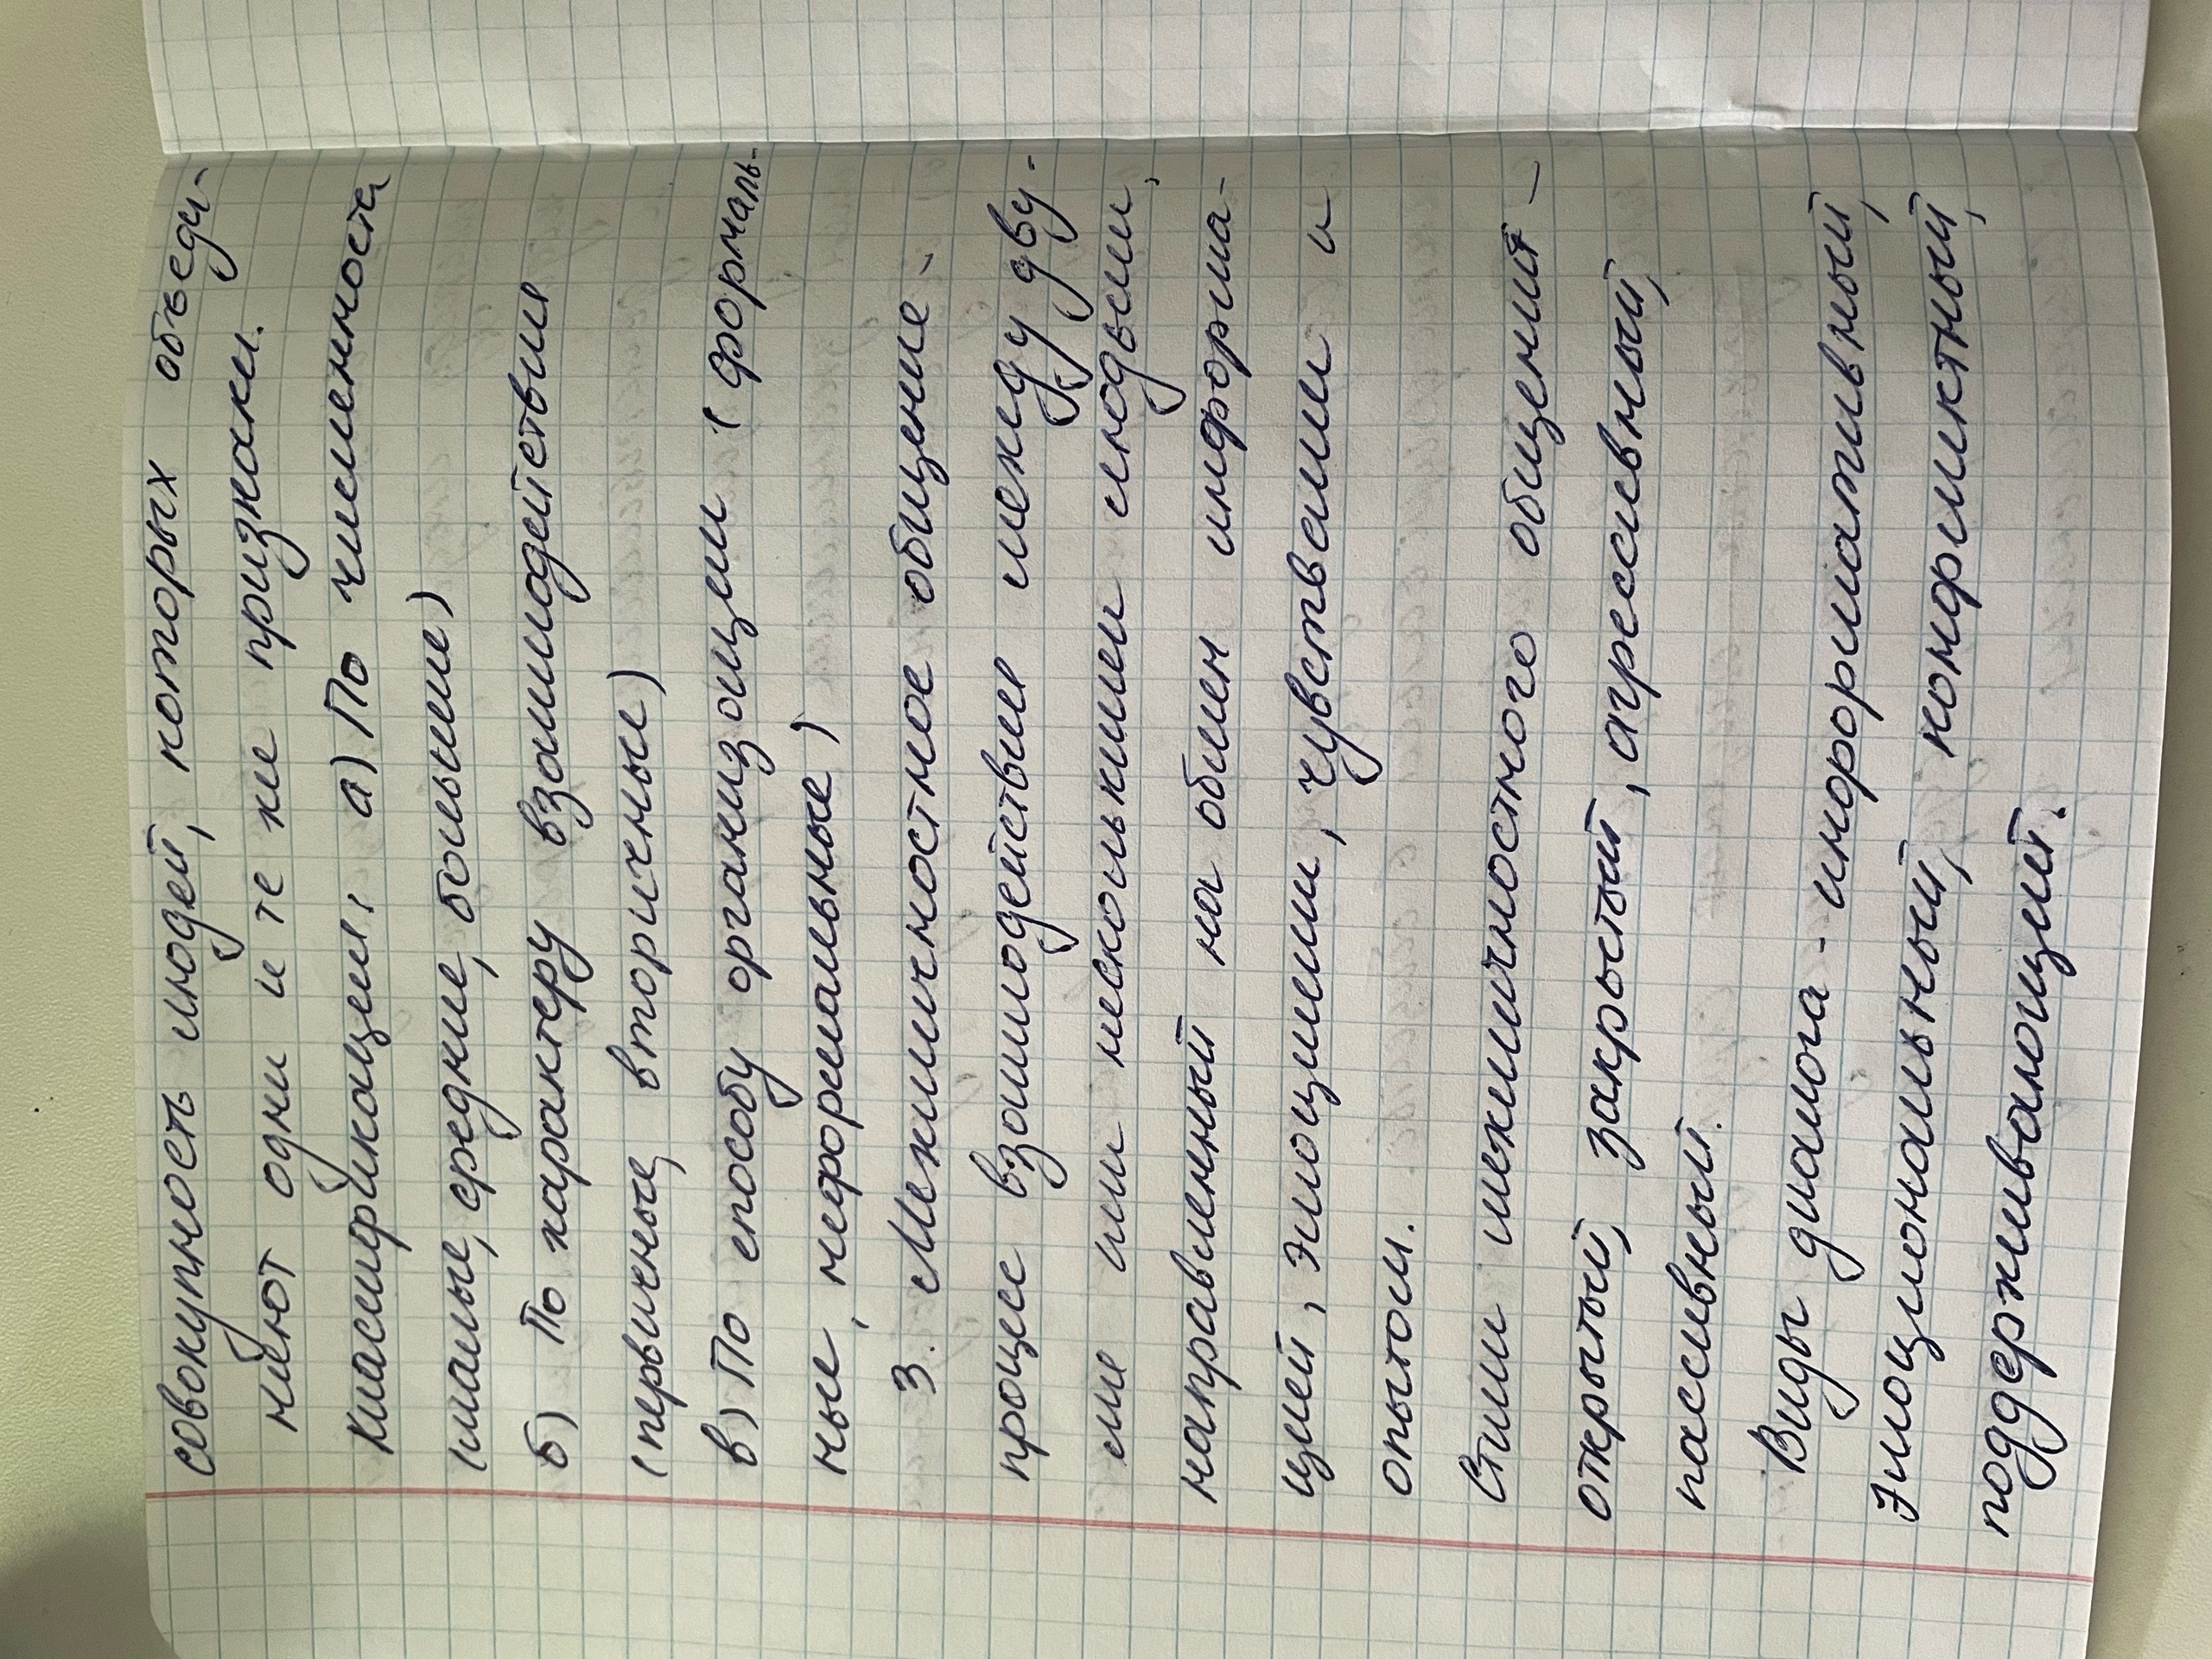 совокупность людей, которых объеди-
няют одни и те же признаки.
Классификации: а) По численности
(малые, средние, большие)
б) По характеру взаимодействия
(первичные, вторичные)
в) По способу организации (формаль-
ные, неформальные)
3. Межличностное общение -
процесс взаимодействия между дву-
мя или несколькими людьми,
направленный на обмен информа-
цией, эмоциями, чувствами и
опытом.
Стили межличностного общения -
открытый, закрытый, агрессивный,
пассивный.
Виды диалога - информативный,
Эмоциональный, конфликтный,
поддерживающий.